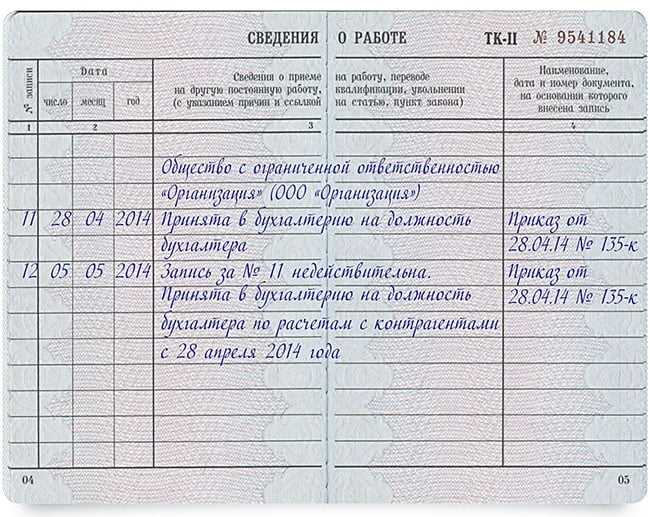 СВЕДЕНИЯ О РАБОТЕ ТК-II № 9541184
№ записи
Дата
число
месяц
год
Сведения о приеме на работу, переводе
на другую постоянную работу, квалификации, увольнении
(с указанием причин и ссылкой на статью, пункт закона)
Наименование,
дата и номер документа,
на основании которого
внесена запись
1 2 3 4
Общество с ограниченной ответственностью
«Организация» (ООО «Организация»)
11 28 04 2014 Принята в бухгалтерию на должность Приказ от
бухгалтера 28.04.14 № 135-к
12 05 05 2014 Запись за № 11 недействительна. Приказ от
Принята в бухгалтерию на должность 28.04.14 № 135-к
бухгалтера по расчетам с контрагентами
с 28 апреля 2014 года
04 05